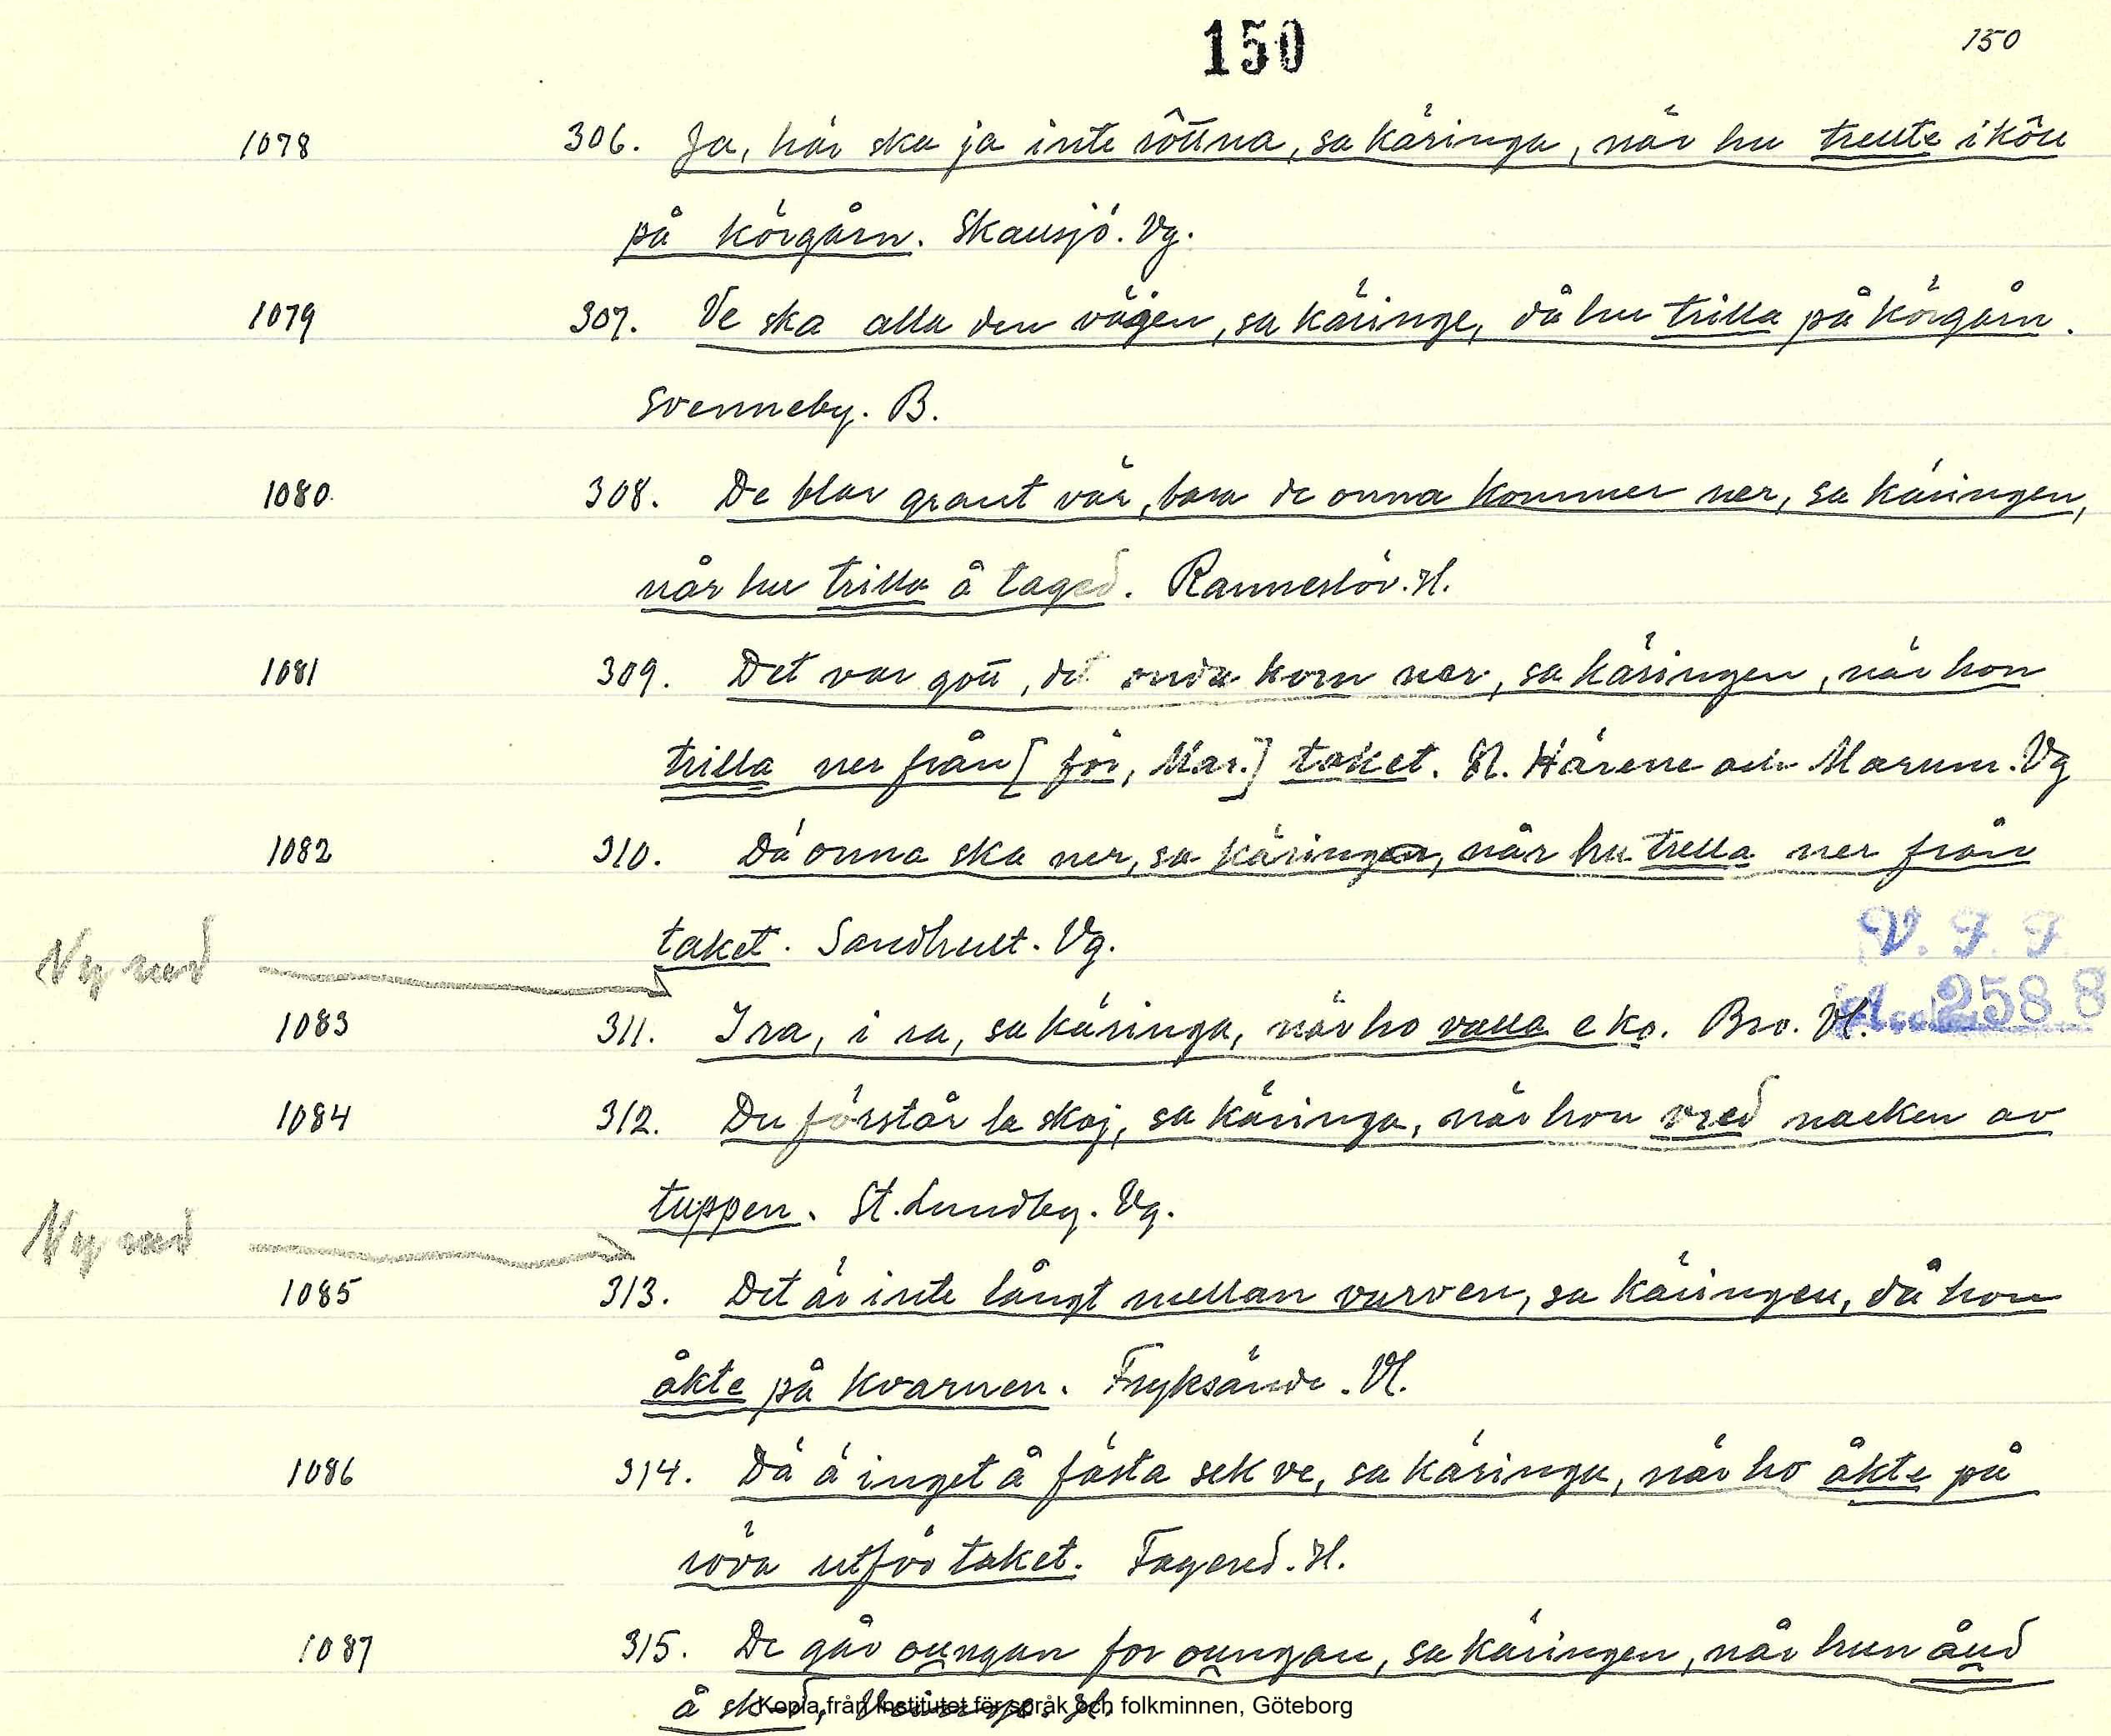 150 150
1078 306. Ja, här ska ja inte rôttna, sa käringa, när hu trutte ikôu
på körgårn. Skansjö. Vg.
1079 307. Ve ska alla den vägen, sa käringe, då hu trilla på körgårn.
Svenneby. B.
1080 308. De blar grant vär, bara de onna kommer ner, sa käringen,
når hu trilla å taged. Ränneslöv. H.
1081 309. Det var gott, det onda kom ner, sa käringen, när hon
trilla ner från [för, Mar.] taket. N. Härene och Marum. Vg
1082 310. Dä onna ska ner, sa käringen, når hu trella ner från
taket. Sandhult. Vg.
Ny rad
V. F. F
1083 311. I ra, i ra, sa käringa, när ho valla e ko. Bro. Vl. Acc. 2588
1084 312. Du förstår la skoj, sa käringa, när hon vred nacken av
tuppen. St. Lundby. Vg.
Ny rad
1085 313. Det är inte långt mellan varven, sa käringen, då hon
åkte på kvarnen. Fryksände. Vl.
1086 314. Dä ä inget å fästa sek ve, sa käringa, när ho åkte på
röva utför taket. Fagered. H.
1087 315. De går oungan for oungan, sa käringen, när hun
Kopia från Institutet för språk och folkminnen, Göteborg